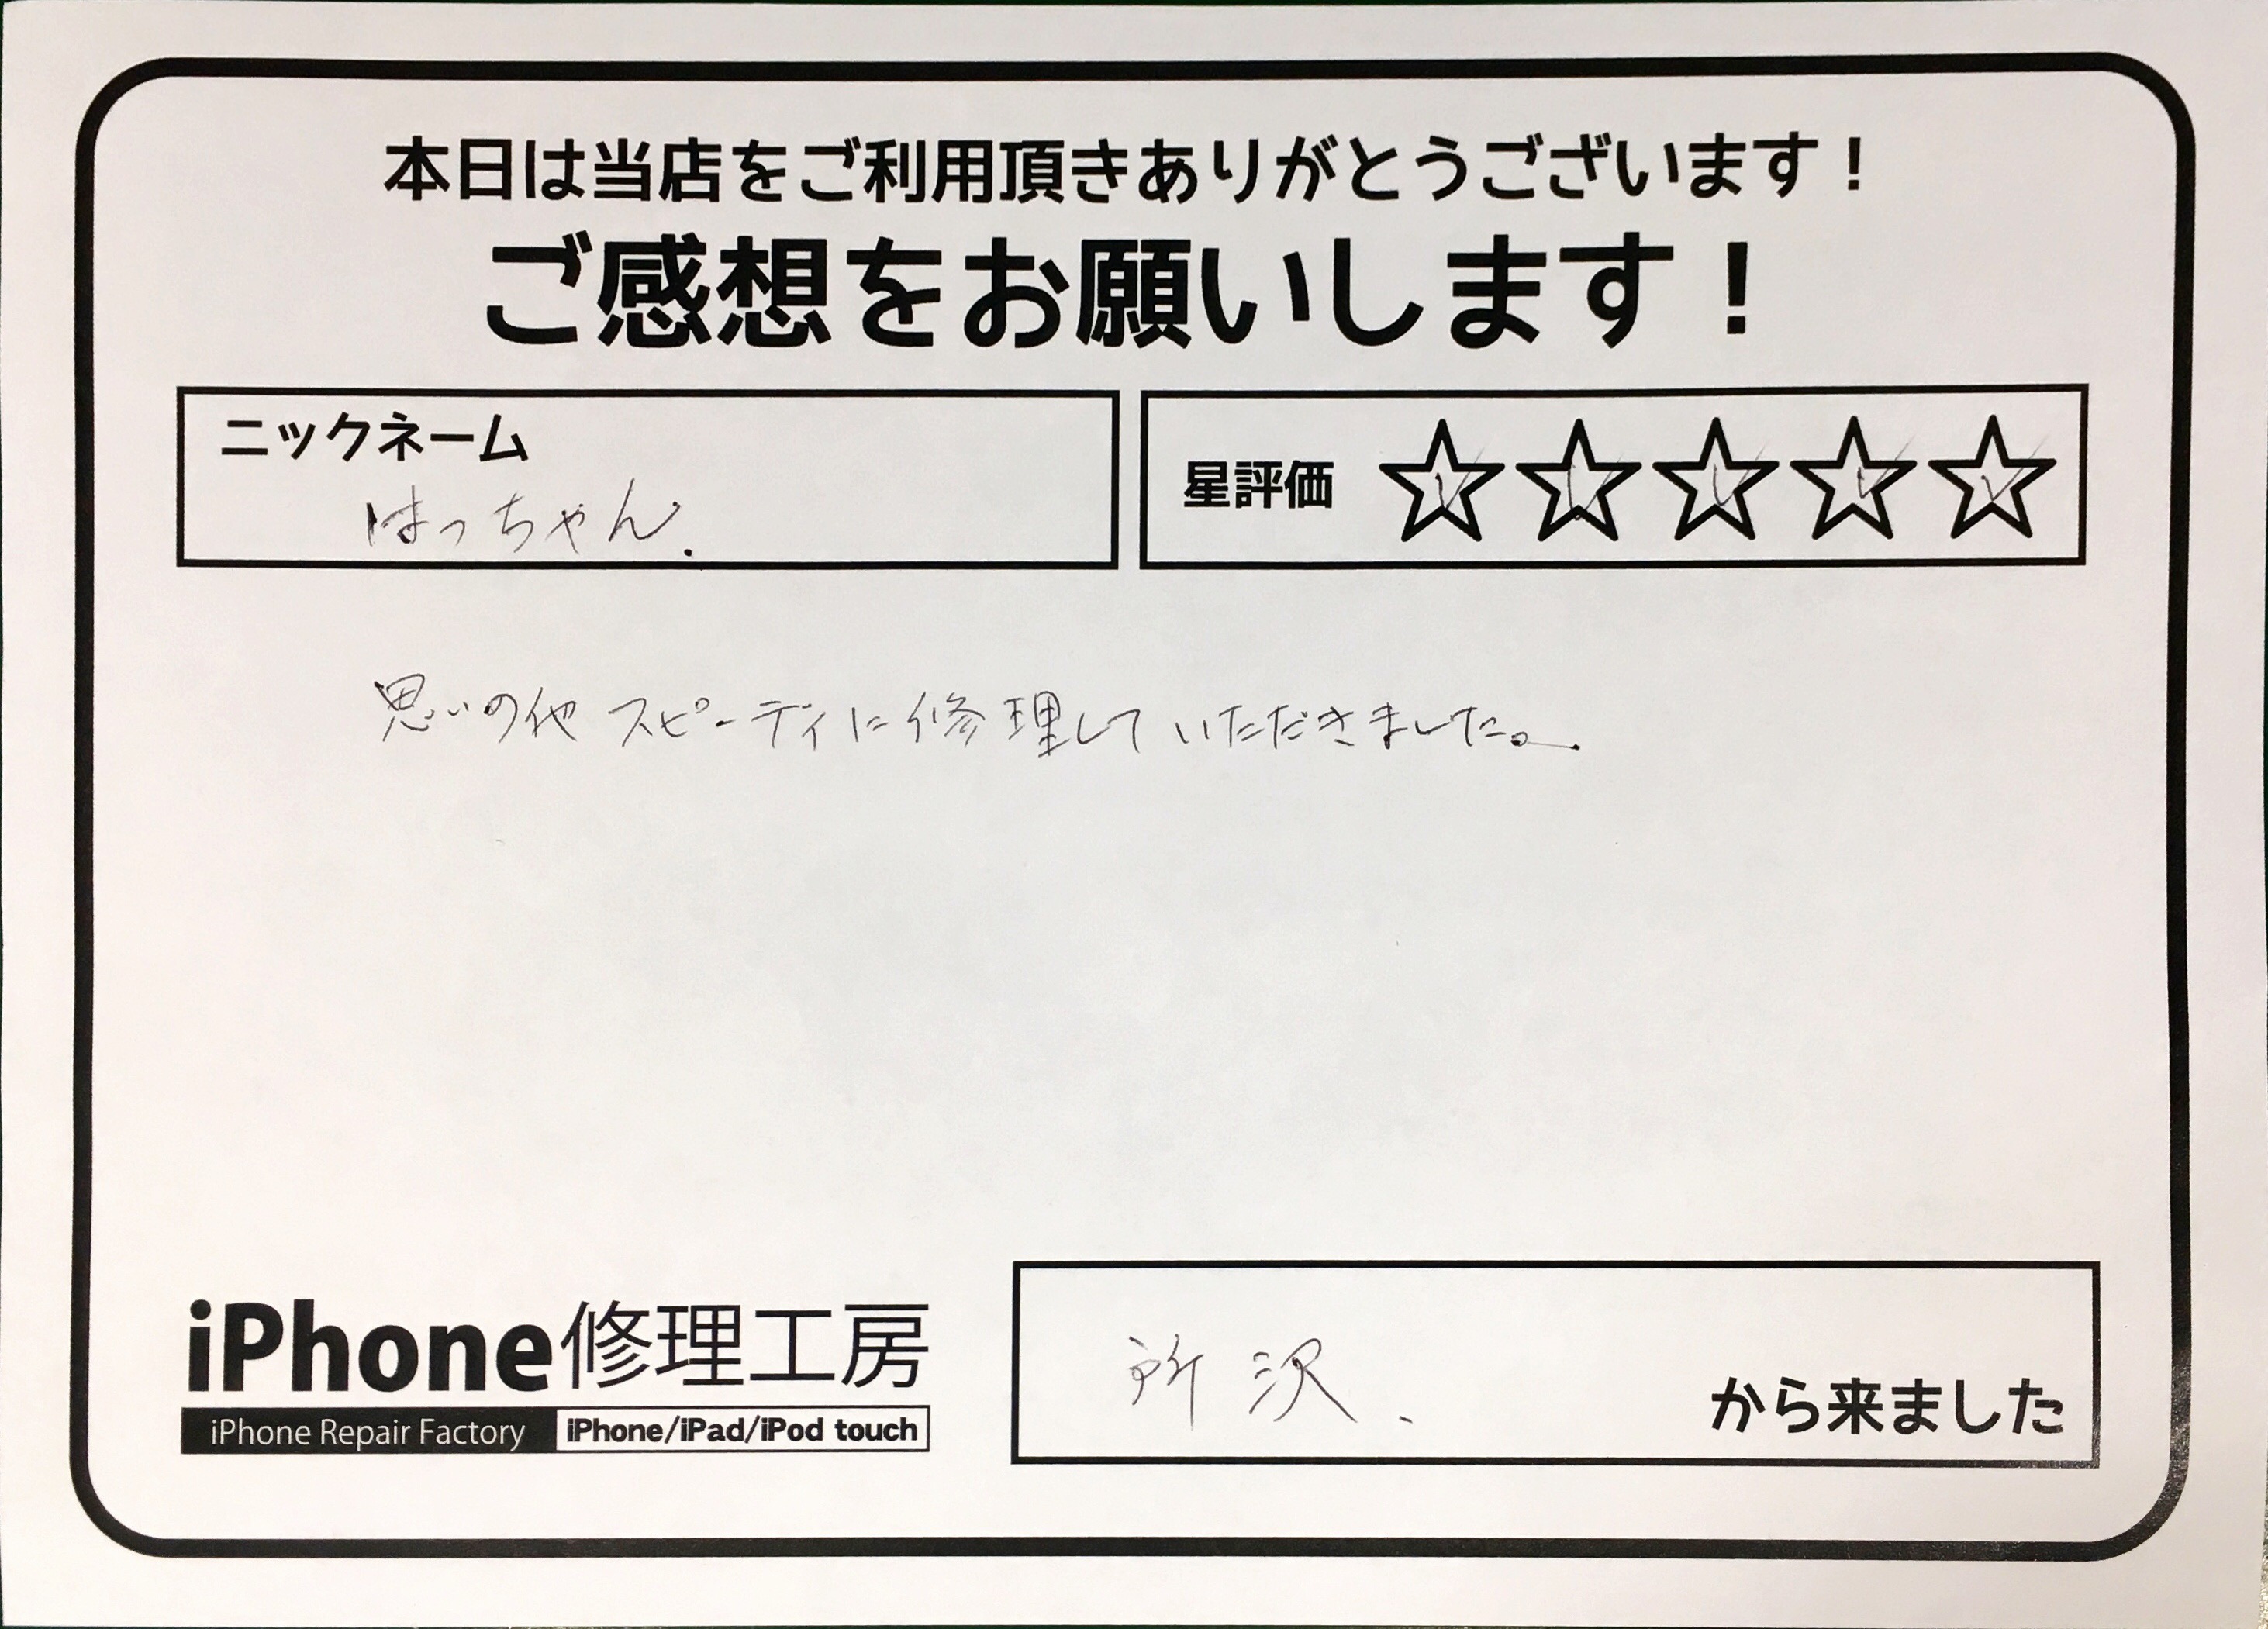 本日は当店をご利用頂きありがとうございます！
ご感想をお願いします！
ニックネーム
はっちゃん.
星評価 ☆☆☆☆☆
思いの他 スピーディに修理して いただきました。
iPhone修理工房
iPhone Repair Factory iPhone/iPad/iPod touch
所沢、
から来ました